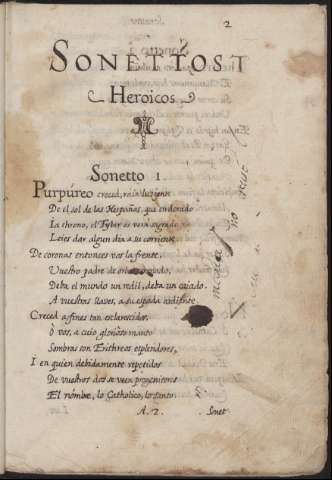 2
SONETTOS I
Heroicos
Sonetto 1.
Purpúreo creced, raio luziente
De el sol de las Hespañas, que en dorado
la throno, el Tyber os verá sagrado
Leies dar algun dia a su corriente.
De coronas entonces vos la frente,
Vuestro padre de orbes
Deba el mundo un redil, deba un caiado.
A vuestras llaves, a su espada ardiente.
Creced a fines tan esclarecidos,
ò vos, a cuio glorioso manto
Sombras son Erithreos esplendores,
I en quien debidamente repetidos
De vuestros dos se veen progenitores
El nómbre, lo Catholico, lo santo.
A. 2. Sonet